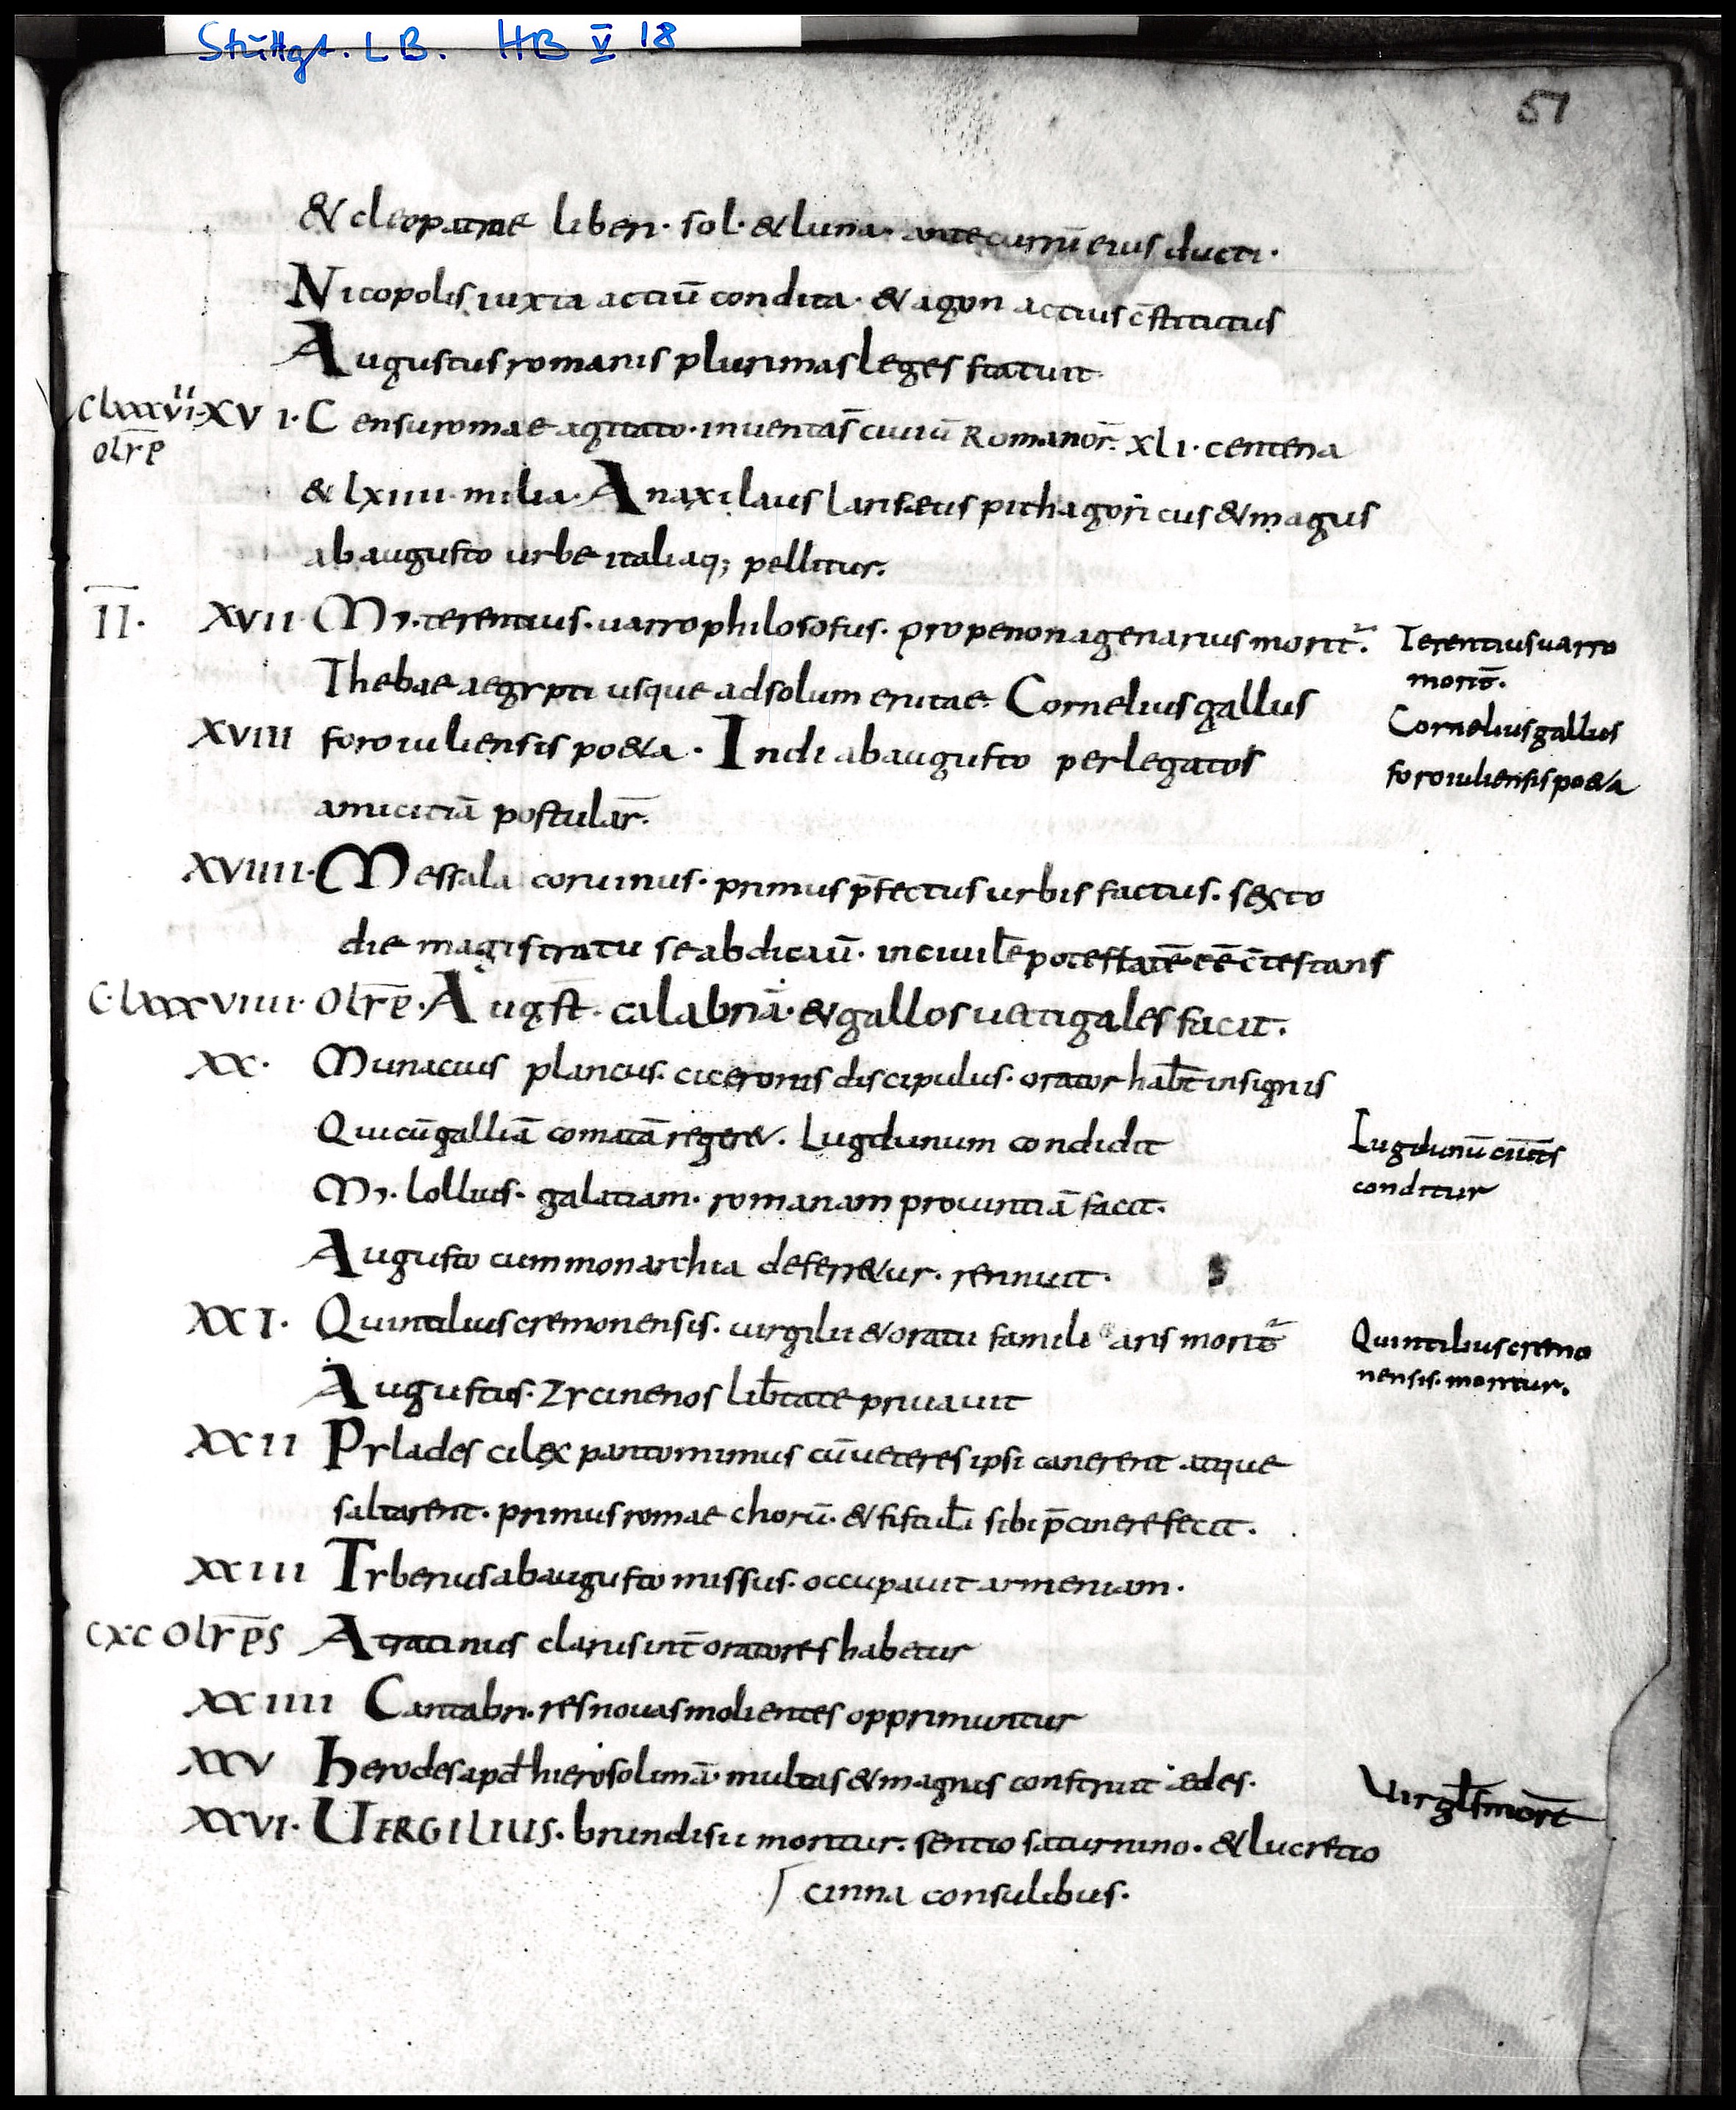 Stuttgt. LB. HB V 18
51
& cleopatrae liberi· sol· & luna· ante currū eius ducti·
Nicopolis iuxta acciū condita· & agon actius c̄stitutus
Augustus romanis plurimas leges statuit·
Clxxxvii· XVI· Censu romae agitato· inventa s̄ civiū Romanor̄· xli· centena
olꝛ̄p
& lxiiii milia· Anaxilaus larisaeus pithagoricus & magus
ab augusto urbe italiaq; pellitur·
II· XVII M,· terentius· uarro philosofus· prope nonagenarius morit᷑· Terentius uarro
morit̄·
Thebae aegypti usque ad solum erutae· Cornelius gallus Cornelius gallus
XVIII foroiuliensis po&a· Indi ab augusto per legatos foroiuliensis po&a
amicitiā postular̄·
XVIIII· Messala coruinus· primus p̄fectus urbis factus· sexto
die magistratu se abdicaū· inciuilē potestatē ēē c̄testans
C·lxxxviiii· Olꝛ̄p· Augst̄· calabriā· & gallos uectigales facit·
XX· Munacius plancus· ciceronis discipulus· orator hab̄t insignis
Qui cū galliā comatā reger&· Lugdunum condidit Lugdunū ciuit̄s
conditur
M,· lollius· galatiam· romanam prouintiā facit·
Augusto cum monarchia deferr&ur· rennuit·
XXI· Quintilius cremonensis· uirgilii & oratii familiaris morit᷑ Quintilius cremo
nensis· moritur·
Augustus· Zycinenos lib̄tate priuauit
XXII Pylades cilex pantomimus cū ueteres ipsi canerent atque
saltarent· primus romae chorū· & fistulā sibi p̄cinere fecit·
XXIII Tyberius ab augusto missus· occupauit armeniam·
CXC Olꝛ̄ps Atratinus clarus int̄ oratores habetur
XXIIII Cantabri· res nouas molientes opprimuntur
XXV Herodes apd̄ hierosolimā· multas & magnas construit aedes·
Uirgl̄s mort̄
XXVI· UERGILIUS· brundisii moritur· sentio saturnino· & lucretio
cinna consulibus·